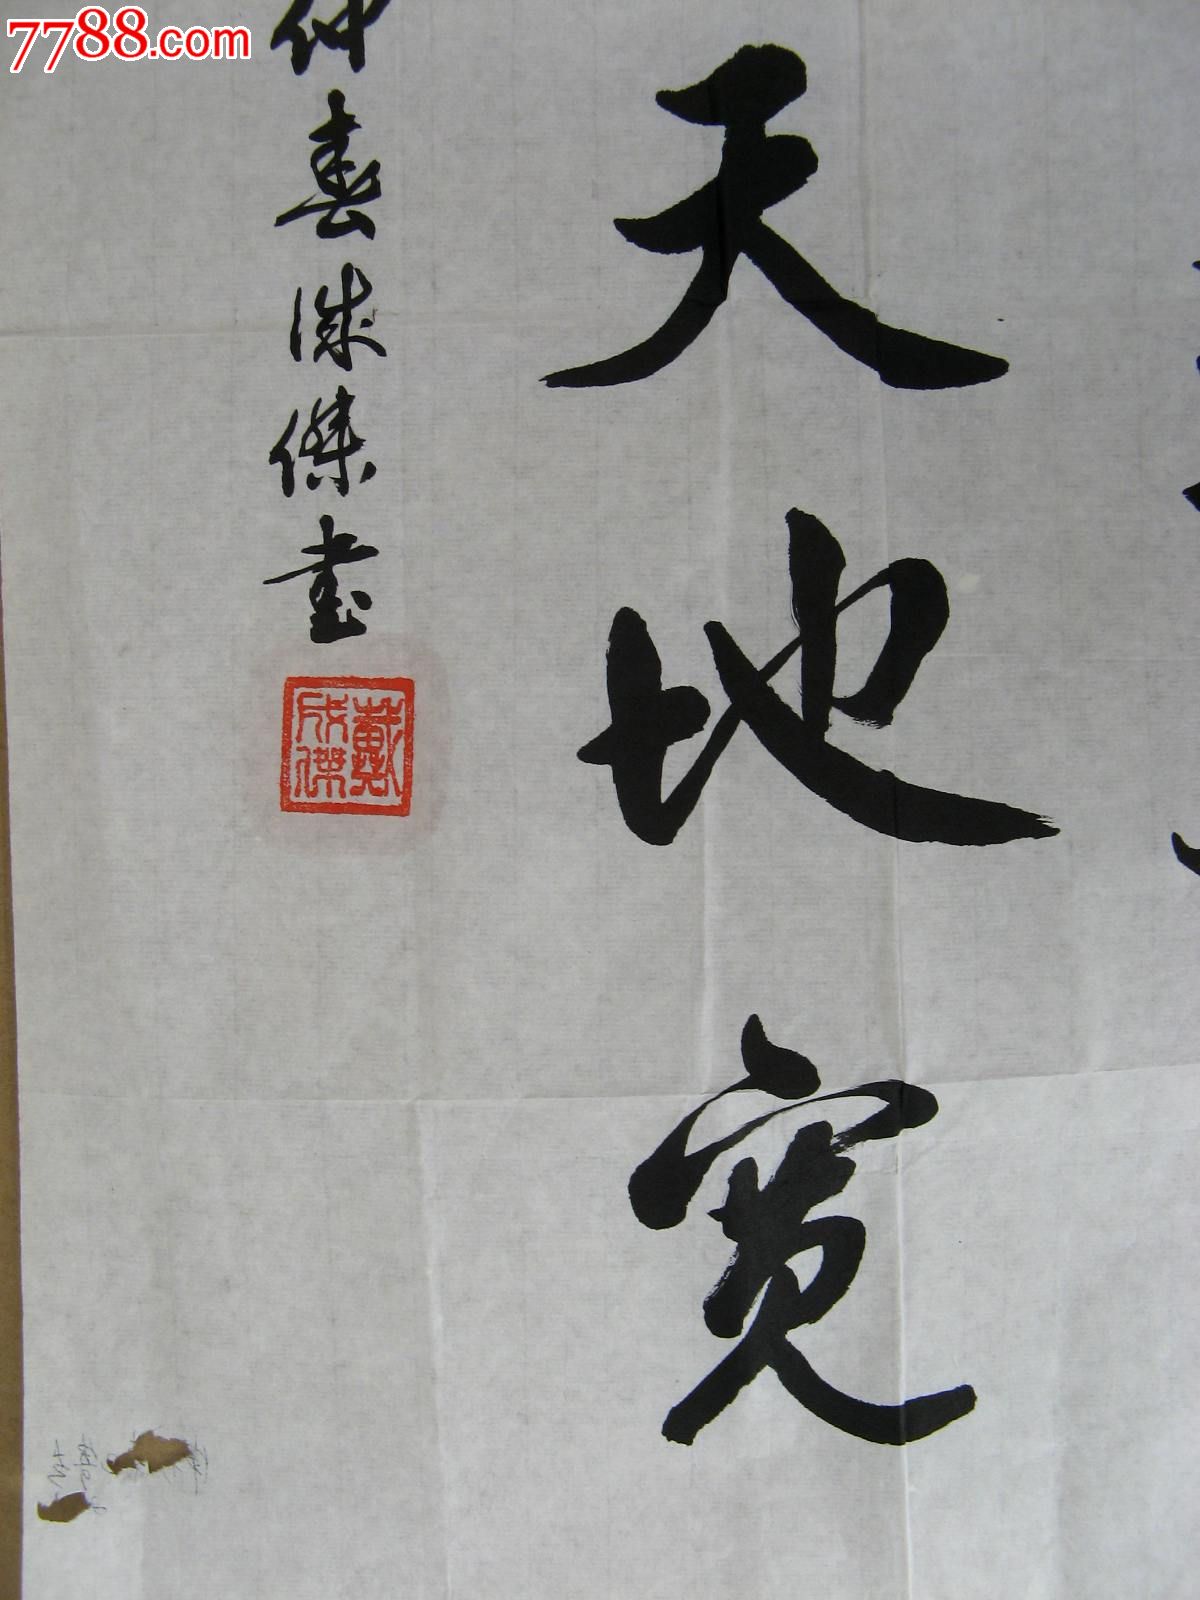 7788.com
天地宽
仲春成傑书
戴成傑